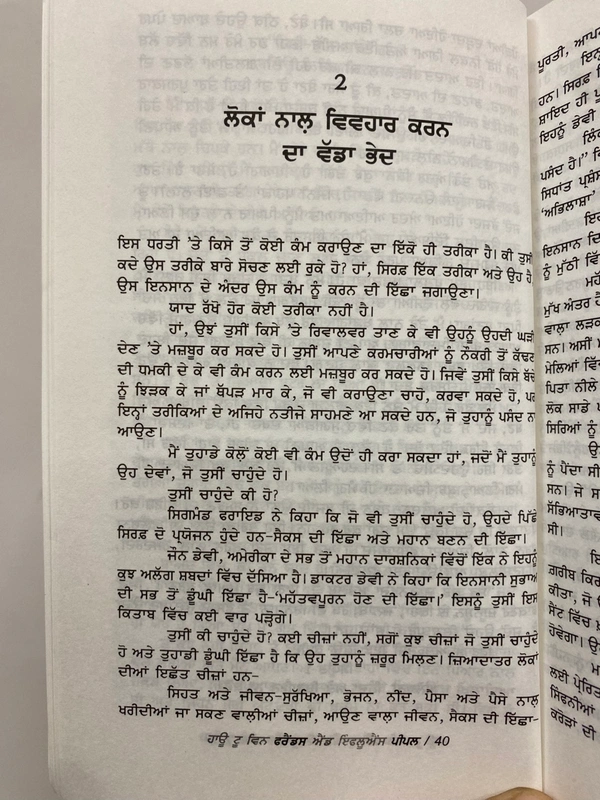 2
ਲੋਕਾਂ ਨਾਲ਼ ਵਿਵਹਾਰ ਕਰਨ
ਦਾ ਵੱਡਾ ਭੇਦ
ਇਸ ਧਰਤੀ ’ਤੇ ਕਿਸੇ ਤੋਂ ਕੋਈ ਕੰਮ ਕਰਾਉਣ ਦਾ ਇੱਕੋ ਹੀ ਤਰੀਕਾ ਹੈ। ਕੀ ਤੁਸੀਂ
ਕਦੇ ਉਸ ਤਰੀਕੇ ਬਾਰੇ ਸੋਚਣ ਲਈ ਰੁਕੇ ਹੋ? ਹਾਂ, ਸਿਰਫ਼ ਇੱਕ ਤਰੀਕਾ ਅਤੇ ਉਹ ਹੈ
ਉਸ ਇਨਸਾਨ ਦੇ ਅੰਦਰ ਉਸ ਕੰਮ ਨੂੰ ਕਰਨ ਦੀ ਇੱਛਾ ਜਗਾਉਣਾ।
ਯਾਦ ਰੱਖੋ ਹੋਰ ਕੋਈ ਤਰੀਕਾ ਨਹੀਂ ਹੈ।
ਹਾਂ, ਉਝਂ ਤੁਸੀਂ ਕਿਸੇ ’ਤੇ ਰਿਵਾਲਵਰ ਤਾਣ ਕੇ ਵੀ ਉਹਨੂੰ ਉਹਦੀ ਘੜੀ
ਦੇਣ ’ਤੇ ਮਜ਼ਬੂਰ ਕਰ ਸਕਦੇ ਹੋ। ਤੁਸੀਂ ਆਪਣੇ ਕਰਮਚਾਰੀਆਂ ਨੂੰ ਨੌਕਰੀ ਤੋਂ ਕੱਢਣ
ਦੀ ਧਮਕੀ ਦੇ ਕੇ ਵੀ ਕੰਮ ਕਰਨ ਲਈ ਮਜ਼ਬੂਰ ਕਰ ਸਕਦੇ ਹੋ। ਜਿਵੇਂ ਤੁਸੀਂ ਕਿਸੇ ਬੱਚੇ
ਨੂੰ ਝਿੜਕ ਕੇ ਜਾਂ ਥੱਪੜ ਮਾਰ ਕੇ, ਜੋ ਵੀ ਕਰਾਉਣਾ ਚਾਹੋ, ਕਰਵਾ ਸਕਦੇ ਹੋ, ਪਰ
ਇਨ੍ਹਾਂ ਤਰੀਕਿਆਂ ਦੇ ਅਜਿਹੇ ਨਤੀਜੇ ਸਾਹਮਣੇ ਆ ਸਕਦੇ ਹਨ, ਜੋ ਤੁਹਾਨੂੰ ਪਸੰਦ ਨਾ
ਆਉਣ।
ਮੈਂ ਤੁਹਾਡੇ ਕੋਲੋਂ ਕੋਈ ਵੀ ਕੰਮ ਉਦੋਂ ਹੀ ਕਰਾ ਸਕਦਾ ਹਾਂ, ਜਦੋਂ ਮੈਂ ਤੁਹਾਨੂੰ
ਉਹ ਦੇਵਾਂ, ਜੋ ਤੁਸੀਂ ਚਾਹੁੰਦੇ ਹੋ।
ਤੁਸੀਂ ਚਾਹੁੰਦੇ ਕੀ ਹੋ?
ਸਿਗਮੰਡ ਫਰਾਇਡ ਨੇ ਕਿਹਾ ਕਿ ਜੋ ਵੀ ਤੁਸੀਂ ਚਾਹੁੰਦੇ ਹੋ, ਉਹਦੇ ਪਿੱਛੇ
ਸਿਰਫ਼ ਦੋ ਪ੍ਰਯੋਜਨ ਹੁੰਦੇ ਹਨ-ਸੈਕਸ ਦੀ ਇੱਛਾ ਅਤੇ ਮਹਾਨ ਬਣਨ ਦੀ ਇੱਛਾ।
ਜੌਨ ਡੇਵੀ, ਅਮੇਰੀਕਾ ਦੇ ਸਭ ਤੋਂ ਮਹਾਨ ਦਾਰਸ਼ਨਿਕਾਂ ਵਿੱਚੋਂ ਇੱਕ ਨੇ ਇਹਨੂੰ
ਕੁਝ ਅਲੱਗ ਸ਼ਬਦਾਂ ਵਿੱਚ ਦੱਸਿਆ ਹੈ। ਡਾਕਟਰ ਡੇਵੀ ਨੇ ਕਿਹਾ ਕਿ ਇਨਸਾਨੀ ਸੁਭਾਅ
ਦੀ ਸਭ ਤੋਂ ਡੂੰਘੀ ਇੱਛਾ ਹੈ-‘ਮਹੱਤਵਪੂਰਨ ਹੋਣ ਦੀ ਇੱਛਾ।’ ਇਸਨੂੰ ਤੁਸੀਂ ਇਸ
ਕਿਤਾਬ ਵਿੱਚ ਕਈ ਵਾਰ ਪੜ੍ਹੋਗੇ।
ਤੁਸੀਂ ਕੀ ਚਾਹੁੰਦੇ ਹੋ? ਕਈ ਚੀਜ਼ਾਂ ਨਹੀਂ, ਸਗੋਂ ਕੁਝ ਚੀਜ਼ਾਂ ਜੋ ਤੁਸੀਂ ਚਾਹੁੰਦੇ
ਹੋ ਅਤੇ ਤੁਹਾਡੀ ਡੂੰਘੀ ਇੱਛਾ ਹੈ ਕਿ ਉਹ ਤੁਹਾਨੂੰ ਜ਼ਰੂਰ ਮਿਲਣ। ਜ਼ਿਆਦਾਤਰ ਲੋਕਾਂ
ਦੀਆਂ ਇਛੱਤ ਚੀਜ਼ਾਂ ਹਨ-
ਸਿਹਤ ਅਤੇ ਜੀਵਨ-ਸੁਰੱਖਿਆ, ਭੋਜਨ, ਨੀਂਦ, ਪੈਸਾ ਅਤੇ ਪੈਸੇ ਨਾਲ਼
ਖਰੀਦੀਆਂ ਜਾ ਸਕਣ ਵਾਲ਼ੀਆਂ ਚੀਜ਼ਾਂ, ਆਉਣ ਵਾਲ਼ਾ ਜੀਵਨ, ਸੈਕਸ ਦੀ ਇੱਛਾ-
ਹਾਊ ਟੂ ਵਿਨ ਫਰੈਂਡਸ ਐਂਡ ਇਫਲੂਐਂਸ ਪੀਪਲ / 40
ਪੂਰਤੀ,
ਹਨ। ਸਿਰਫ਼
ਸ਼ਾਇਦ ਹੀ
ਇਹਨੂੰ ਡੇਵੀ
ਪਸੰਦ ਹੈ।”
ਸਿਧਾਂਤ
‘ਅਭਿਲਾਸ਼ਾ’
ਇਨਸਾਨ
ਨੂੰ ਮੁੱਠੀ
ਮੁੱਖ ਅੰਤਰ
ਵਾਲ਼ਾ ਲੜਕ
ਸਨ। ਅਸੀਂ
ਮੇਲਿਆਂ
ਪਿਤਾ ਨੀਲੇ
ਲੋਕ ਸਾਡੇ
ਸਿਰਿਆਂ ਨੂੰ
ਨੂੰ ਪੈਂਦਾ ਸੀ
ਸਨ। ਜੇ
ਸੀ।
ਗ਼ਰੀਬ
ਕੀਤਾ, ਜੋ
ਸੇਂਟ ਵਿੱਚ
ਹੋਵੇਗਾ।
ਲਈ
ਕਰੋੜਾਂ ਦੀ